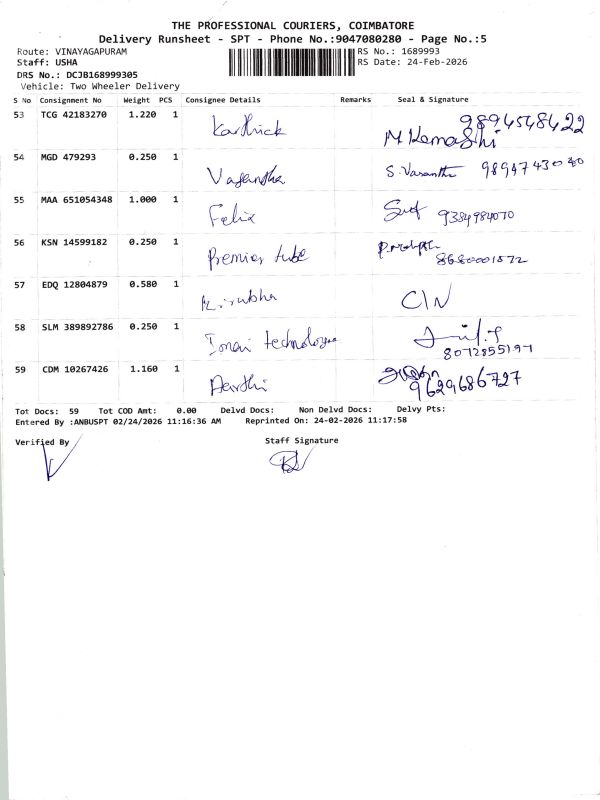 THE PROFESSIONAL COURIERS, COIMBATORE
Delivery Runsheet - SPT - Phone No.:9047080280 - Page No.:5
Route: VINAYAGAPURAM RS No.: 1689993
Staff: USHA RS Date: 24-Feb-2026
DRS No.: DCJB168999305
Vehicle: Two Wheeler Delivery
S No Consignment No Weight PCS Consignee Details Remarks Seal & Signature
53 TCG 42183270 1.220 1 Karthick 9894548422
54 MGD 479293 0.250 1 Vasantha S. Vasantha
55 MAA 651054348 1.000 1 Felix 9384984070
56 KSN 14599182 0.250 1 Premier tube 8680001572
57 EDQ 12804879 0.580 1 CIN
58 SLM 389892786 0.250 1 8072855197
59 CDM 10267426 1.160 1 Aarthi 9629686727
Tot Docs: 59 Tot COD Amt: 0.00 Delvd Docs: Non Delvd Docs: Delvy Pts:
Entered By :ANBUSPT 02/24/2026 11:16:36 AM Reprinted On: 24-02-2026 11:17:58
Verified By Staff Signature